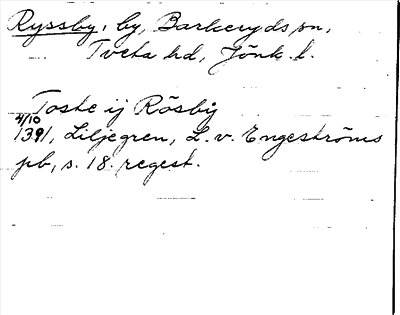 Ryssby, by, Barkeryds sn,
Tveta hd, Jönk. l.
Toske ij Rösbÿ
4/10
1391, Liljegren, L. v. Engeströms
pb, s. 18. regest.